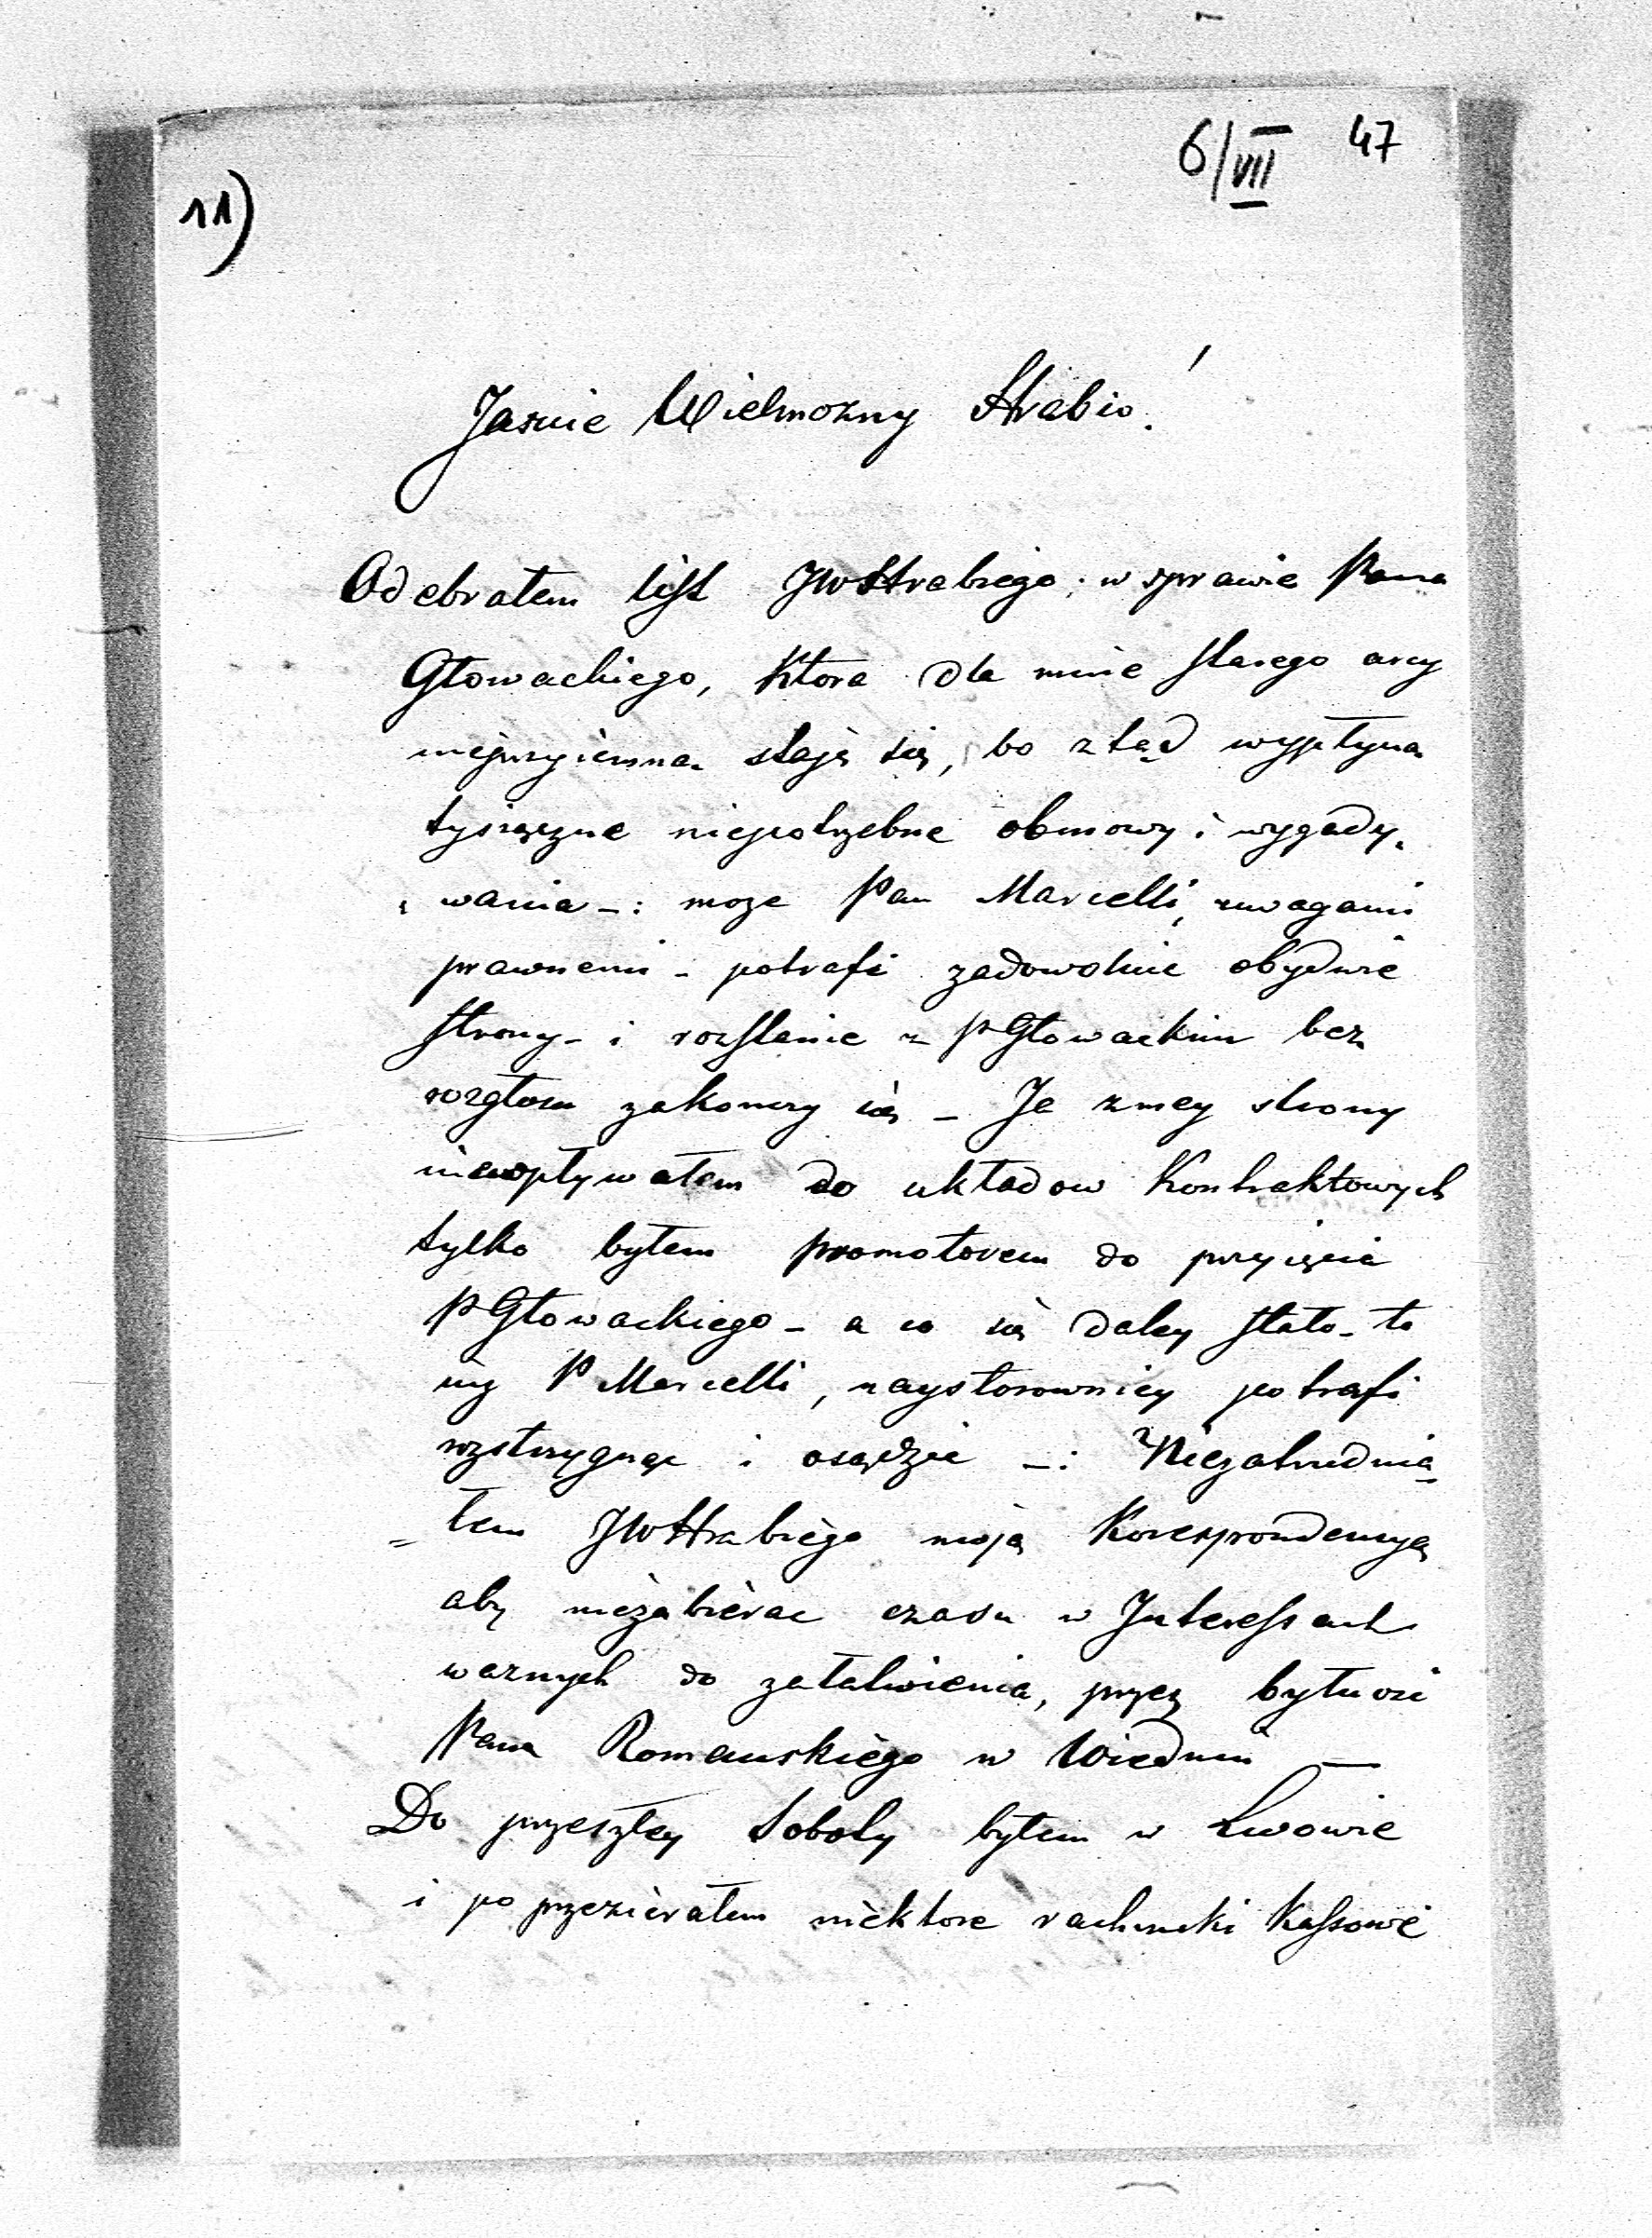 6/VII 47
11)
Jasnie Wielmozny Hrabio!
Odebrałem list JWHrabiego; w sprawie Pana
Głowackiego, Ktora dla mnie starego arcy
nieprzyiemna staje się, bo ztąd wypływa
tysiączne niepotrzebne obmowy i wygady„
„wania -: moze Pan Marcelli, uwagami
prawnemi - potrafi zadowolnic obydwie
strony - i rozstanie z PGłowackim bez
rozgłosu zakonczy się - Ja zmey strony
niewpływałem do układow Kontraktowych
tylko byłem promotorem do przyięcia
PGłowackiego - a co się daley stało - to
iuz P Marcelli, naystosowniey potrafi
rozstrzygnąc i osądzic -: Niezatrudnia„
=łem JWHrabiego moją Korespondencyą
aby niezabierac czasu w Interessach
waznych do załatwienia, przez bytnosc
Pana Romanskiego w Wiedniu —
Do przeszłey Soboty byłem w Lwowie
i poprzezierałem niektore rachunki Kassowe